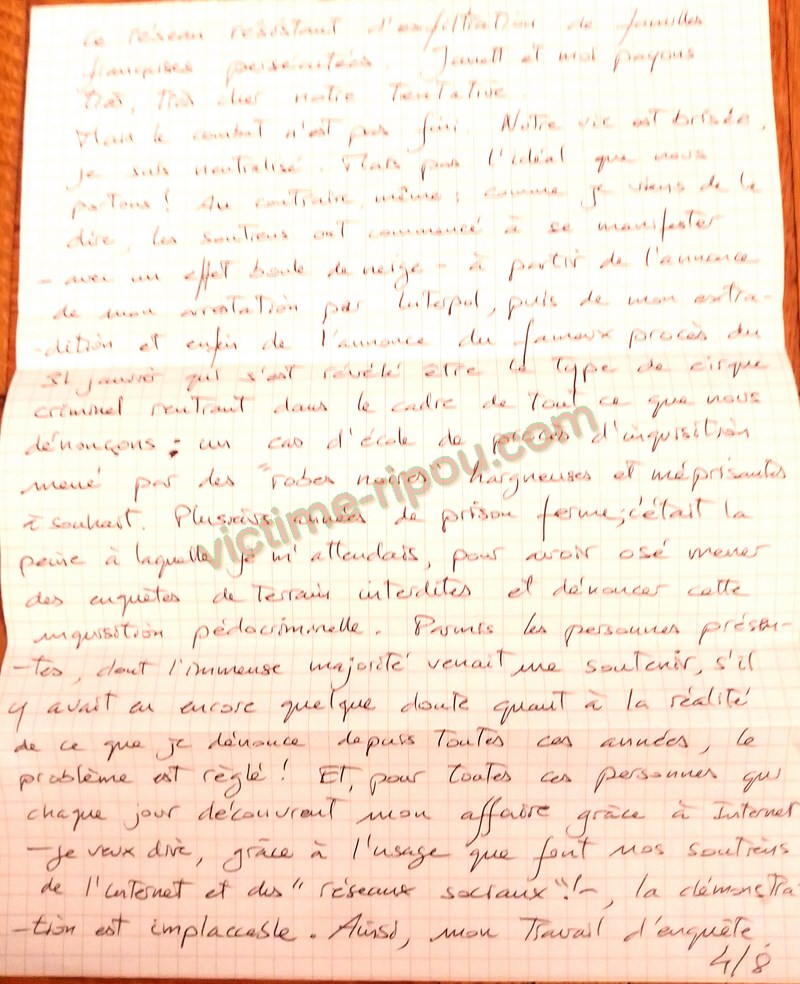 ce réseau résistant d'exfiltration de familles
françaises persécutées. Janett et moi payons
très, très cher notre tentative.
Mais le combat n'est pas fini. Notre vie est brisée,
je suis neutralisé. Mais pas l'idéal que nous
portons! Au contraire, même; comme je viens de le
dire, les soutiens ont commencé à se manifester
- avec un effet boule de neige - à partir de l'annonce
de mon arrestation par Interpol, puis de mon extra-
-dition et enfin de l'annonce du fameux procès du
31 janvier qui s'est révélé être le type de cirque
criminel rentrant dans le cadre de tout ce que nous
dénonçons: un cas d'école de procès d'inquisition
mené par des "robes noires" hargneuses et méprisantes
à souhait. Plusieurs années de prison ferme; c'était la
peine à laquelle je m'attendais, pour avoir osé mener
des enquêtes de terrain interdites et dénoncer cette
inquisition pédocriminelle. Parmis les personnes présen-
-tes, dont l'immense majorité venait me soutenir, s'il
y avait eu encore quelque doute quant à la réalité
de ce que je dénonce depuis toutes ces années, le
problème est règlé! Et, pour toutes ces personnes qui
chaque jour découvrent mon affaire grâce à Internet
- je veux dire, grâce à l'usage que font nos soutiens
de l'Internet et des "réseaux sociaux"! -, la démonstra-
-tion est implaccable. Ainsi, mon travail d'enquête
4/8
victime-ripou.com